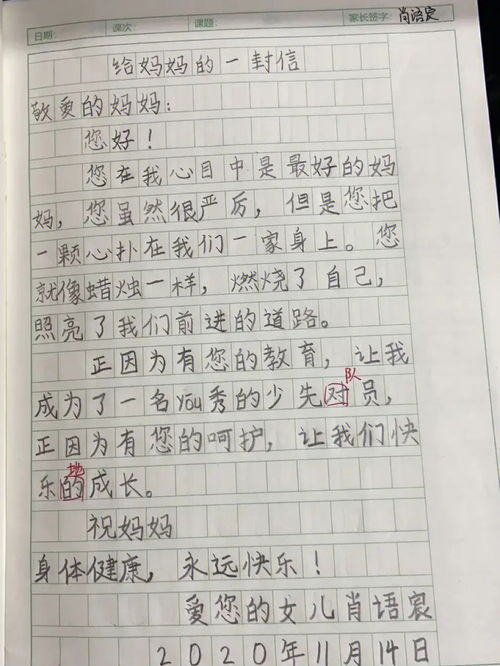 日期： 课次： 课题： 家长签字：肖语宸
给妈妈的一封信
敬爱的妈妈：
您好！
您在我心目中是最好的妈
妈，您虽然很严厉，但是您把
一颗心扑在我们一家身上。您
就像蜡烛一样，燃烧了自己，
照亮了我们前进的道路。
正因为有您的教育，让我
队
成为了一名you秀的少先对员，
正因为有您的呵护，让我们快
地
乐的成长。
祝妈妈
身体健康，永远快乐！
爱您的女儿肖语宸
2020年11月14日